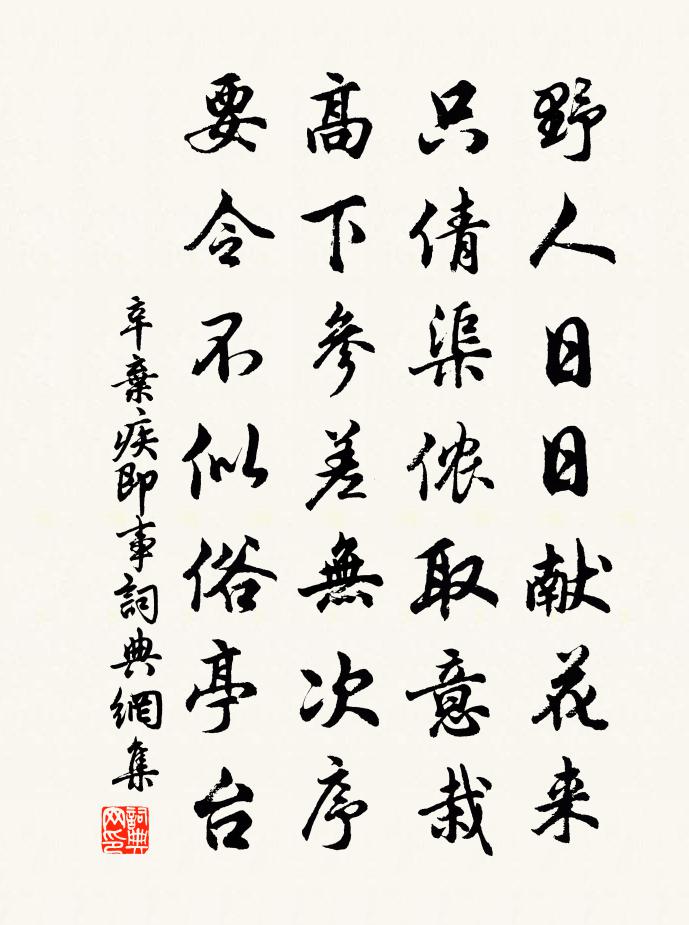 野人日日献花来
只倩渠侬取意栽
高下参差無次序
要令不似俗亭台
辛棄疾即事詞典網集
詞典网印